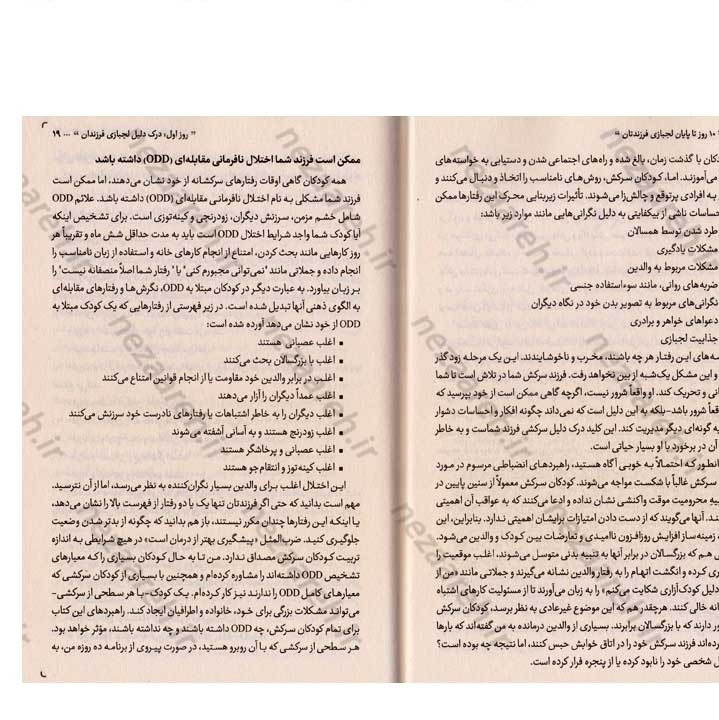 ۱۰ روز تا پایان لجبازی فرزندتان "
کان با گذشت زمان، بالغ شده و راه‌های اجتماعی شدن و دستیابی به خواسته‌های
می‌آموزند. اما، کودکان سرکش، روش‌های نامناسب را اتخاذ و دنبال می‌کنند و
به افرادی پرتوقع و چالش‌زا می‌شوند. تأثیرات زیربنایی محرک این رفتارها ممکن
ساسات ناشی از بی‌کفایتی به دلیل نگرانی‌هایی مانند موارد زیر باشد:
طرد شدن توسط همسالان
مشکلات یادگیری
مشکلات مربوط به والدین
ضربه‌های روانی، مانند سوءاستفاده جنسی
نگرانی‌های مربوط به تصویر بدن خود در نگاه دیگران
دعواهای خواهر و برادری
جذابیت لجبازی
ه‌های این رفتار هر چه باشند، مخرب و ناخوشایندند. این یک مرحله زودگذر
و این مشکل یک‌شبه از بین نخواهد رفت. فرزند سرکش شما در تلاش است تا شما
نی و تحریک کند. او واقعاً شرور نیست، اگرچه گاهی ممکن است از خود بپرسید که
قعاً شرور باشد-بلکه به این دلیل است که نمی‌داند چگونه افکار و احساسات دشوار
به گونه‌ای دیگر مدیریت کند. این کلید درک دلیل سرکشی فرزند شماست و به خاطر
آن در برخورد با او بسیار حیاتی است.
انطور که احتمالاً به خوبی آگاه هستید، راهبردهای انضباطی مرسوم در مورد
سرکش غالباً با شکست مواجه می‌شوند. کودکان سرکش معمولاً از سنین پایین در
بیهِ محرومیت موقت واکنشی نشان نداده و ادعا می‌کنند که به عواقب آن اهمیتی
ند. آنها می‌گویند که از دست دادن امتیازات برایشان اهمیتی ندارد. بنابراین، این
زمینه‌ساز افزایش روزافزون ناامیدی و تعارضات بین کودک و والدین می‌شود.
ی هم که بزرگسالان در برابر آنها به تنبیه بدنی متوسل می‌شوند، اغلب موقعیت را
ری کرده و انگشت اتهام را به رفتار والدین نشانه می‌گیرند و جملاتی مانند «من از
دلیل کودک‌آزاری شکایت می‌کنم» را به زبان می‌آورند تا از مسئولیت کارهای اشتباه
انه خالی کنند. هرچقدر هم که این موضوع غیرعادی به نظر برسد، کودکان سرکش
ور دارند که با بزرگسالان برابرند. بسیاری از والدین درمانده به من گفته‌اند که بارها
رده‌اند فرزند سرکش خود را در اتاق خوابش حبس کنند، اما نتیجه چه بوده است؟
ل شخصی خود را نابود کرده یا از پنجره فرار کرده است.
" روز اول: درک دلیل لجبازی فرزندان " ... ۱۹
ممکن است فرزند شما اختلال نافرمانی مقابله‌ای (ODD) داشته باشد
همه کودکان گاهی اوقات رفتارهای سرکشانه از خود نشان می‌دهند، اما ممکن است
فرزند شما مشکلی به نام اختلال نافرمانی مقابله‌ای (ODD) داشته باشد. علائم ODD
شامل خشم مزمن، سرزنش دیگران، زودرنجی و کینه‌توزی است. برای تشخیص اینکه
آیا کودک شما واجد شرایط اختلال ODD است باید به مدت حداقل شش ماه و تقریباً هر
روز کارهایی مانند بحث کردن، امتناع از انجام کارهای خانه و استفاده از زبان نامناسب را
انجام داده و جملاتی مانند "نمی‌توانی مجبورم کنی" یا "رفتار شما اصلاً منصفانه نیست" را
بر زبان بیاورد. به عبارت دیگر در کودکان مبتلا به ODD، نگرش‌ها و رفتارهای مقابله‌ای
به الگوی ذهنی آنها تبدیل شده است. در زیر فهرستی از رفتارهایی که یک کودک مبتلا به
ODD از خود نشان می‌دهد آورده شده است:
▪ اغلب عصبانی هستند
▪ اغلب با بزرگسالان بحث می‌کنند
▪ اغلب در برابر والدین خود مقاومت یا از انجام قوانین امتناع می‌کنند
▪ اغلب عمداً دیگران را آزار می‌دهند
▪ اغلب دیگران را به خاطر اشتباهات یا رفتارهای نادرست خود سرزنش می‌کنند
▪ اغلب زودرنج هستند و به آسانی آشفته می‌شوند
▪ اغلب عصبانی و پرخاشگر هستند
▪ اغلب کینه‌توز و انتقام‌جو هستند
این اختلال اغلب برای والدین بسیار نگران‌کننده به نظر می‌رسد، اما از آن نترسید.
مهم است بدانید که حتی اگر فرزندتان تنها یک یا دو رفتار از فهرست بالا را نشان می‌دهد،
یا اینکه این رفتارها چندان مکرر نیستند، باز هم بدانید که چگونه از بدتر شدن وضعیت
جلوگیری کنید. ضرب‌المثل «پیشگیری بهتر از درمان است» در هیچ شرایطی به اندازه
تربیت کودکان سرکش مصداق ندارد. من تا به حال کودکان بسیاری را که معیارهای
تشخیص ODD داشته‌اند را مشاوره کرده‌ام و همچنین با بسیاری از کودکان سرکشی که
معیارهای کامل ODD را ندارند نیز کار کرده‌ام. یک کودک-با هر سطحی از سرکشی-
می‌تواند مشکلات بزرگی برای خود، خانواده و اطرافیان ایجاد کند. راهبردهای این کتاب
برای تمام کودکان سرکش، چه ODD داشته باشند و چه نداشته باشند، مؤثر خواهد بود.
هر سطحی از سرکشی که با آن روبرو هستید، در صورت پیروی از برنامه ده روزه من، به
nezareh.ir